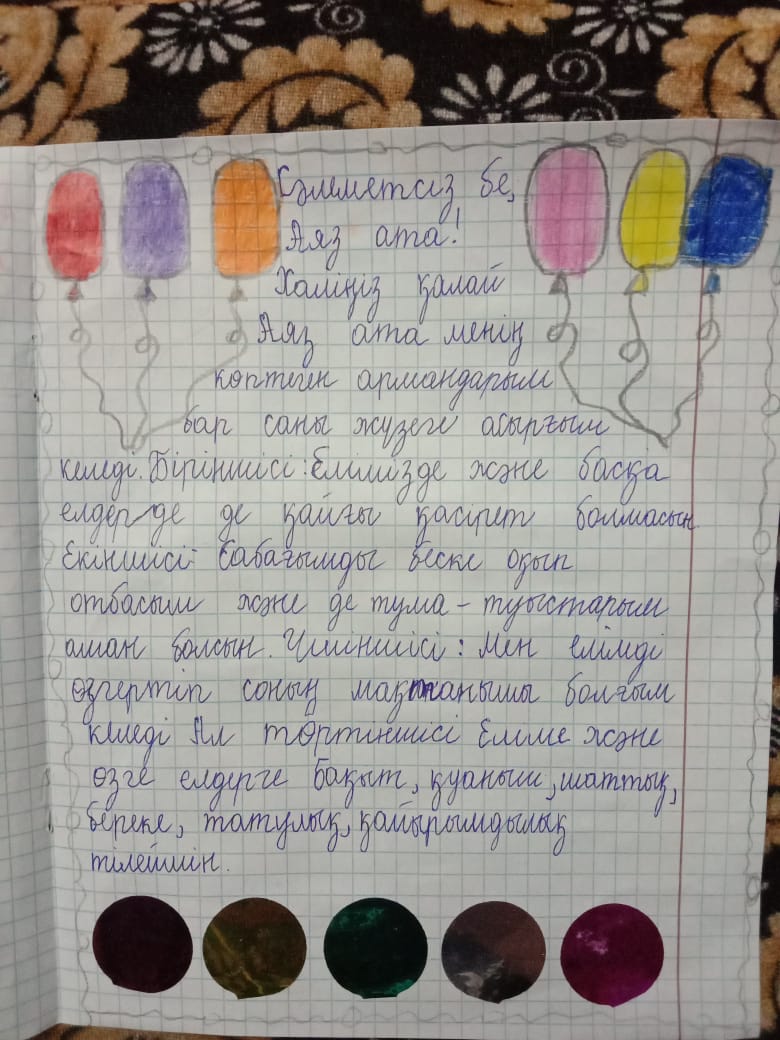 Сәлеметсіз бе,
Аяз ата!
Халіңіз қалай
Аяз ата менің
көптеген армандарым
бар саны жүзеге асырғым
келеді. Біріншісі: Елімізде және басқа
елдерде де қайғы қасірет болмасын
Екіншісі: Сабағымды беске оқып
отбасым және де тума - туыстарым
аман болсын. Үшіншісі: Мен елімді
өзгертіп соның мақтанышы болғым
келеді Ал төртіншісі Еліме және
өзге елдерге бақыт, қуаныш, шаттық,
береке, татулық, қайырымдылық
тілеймін.